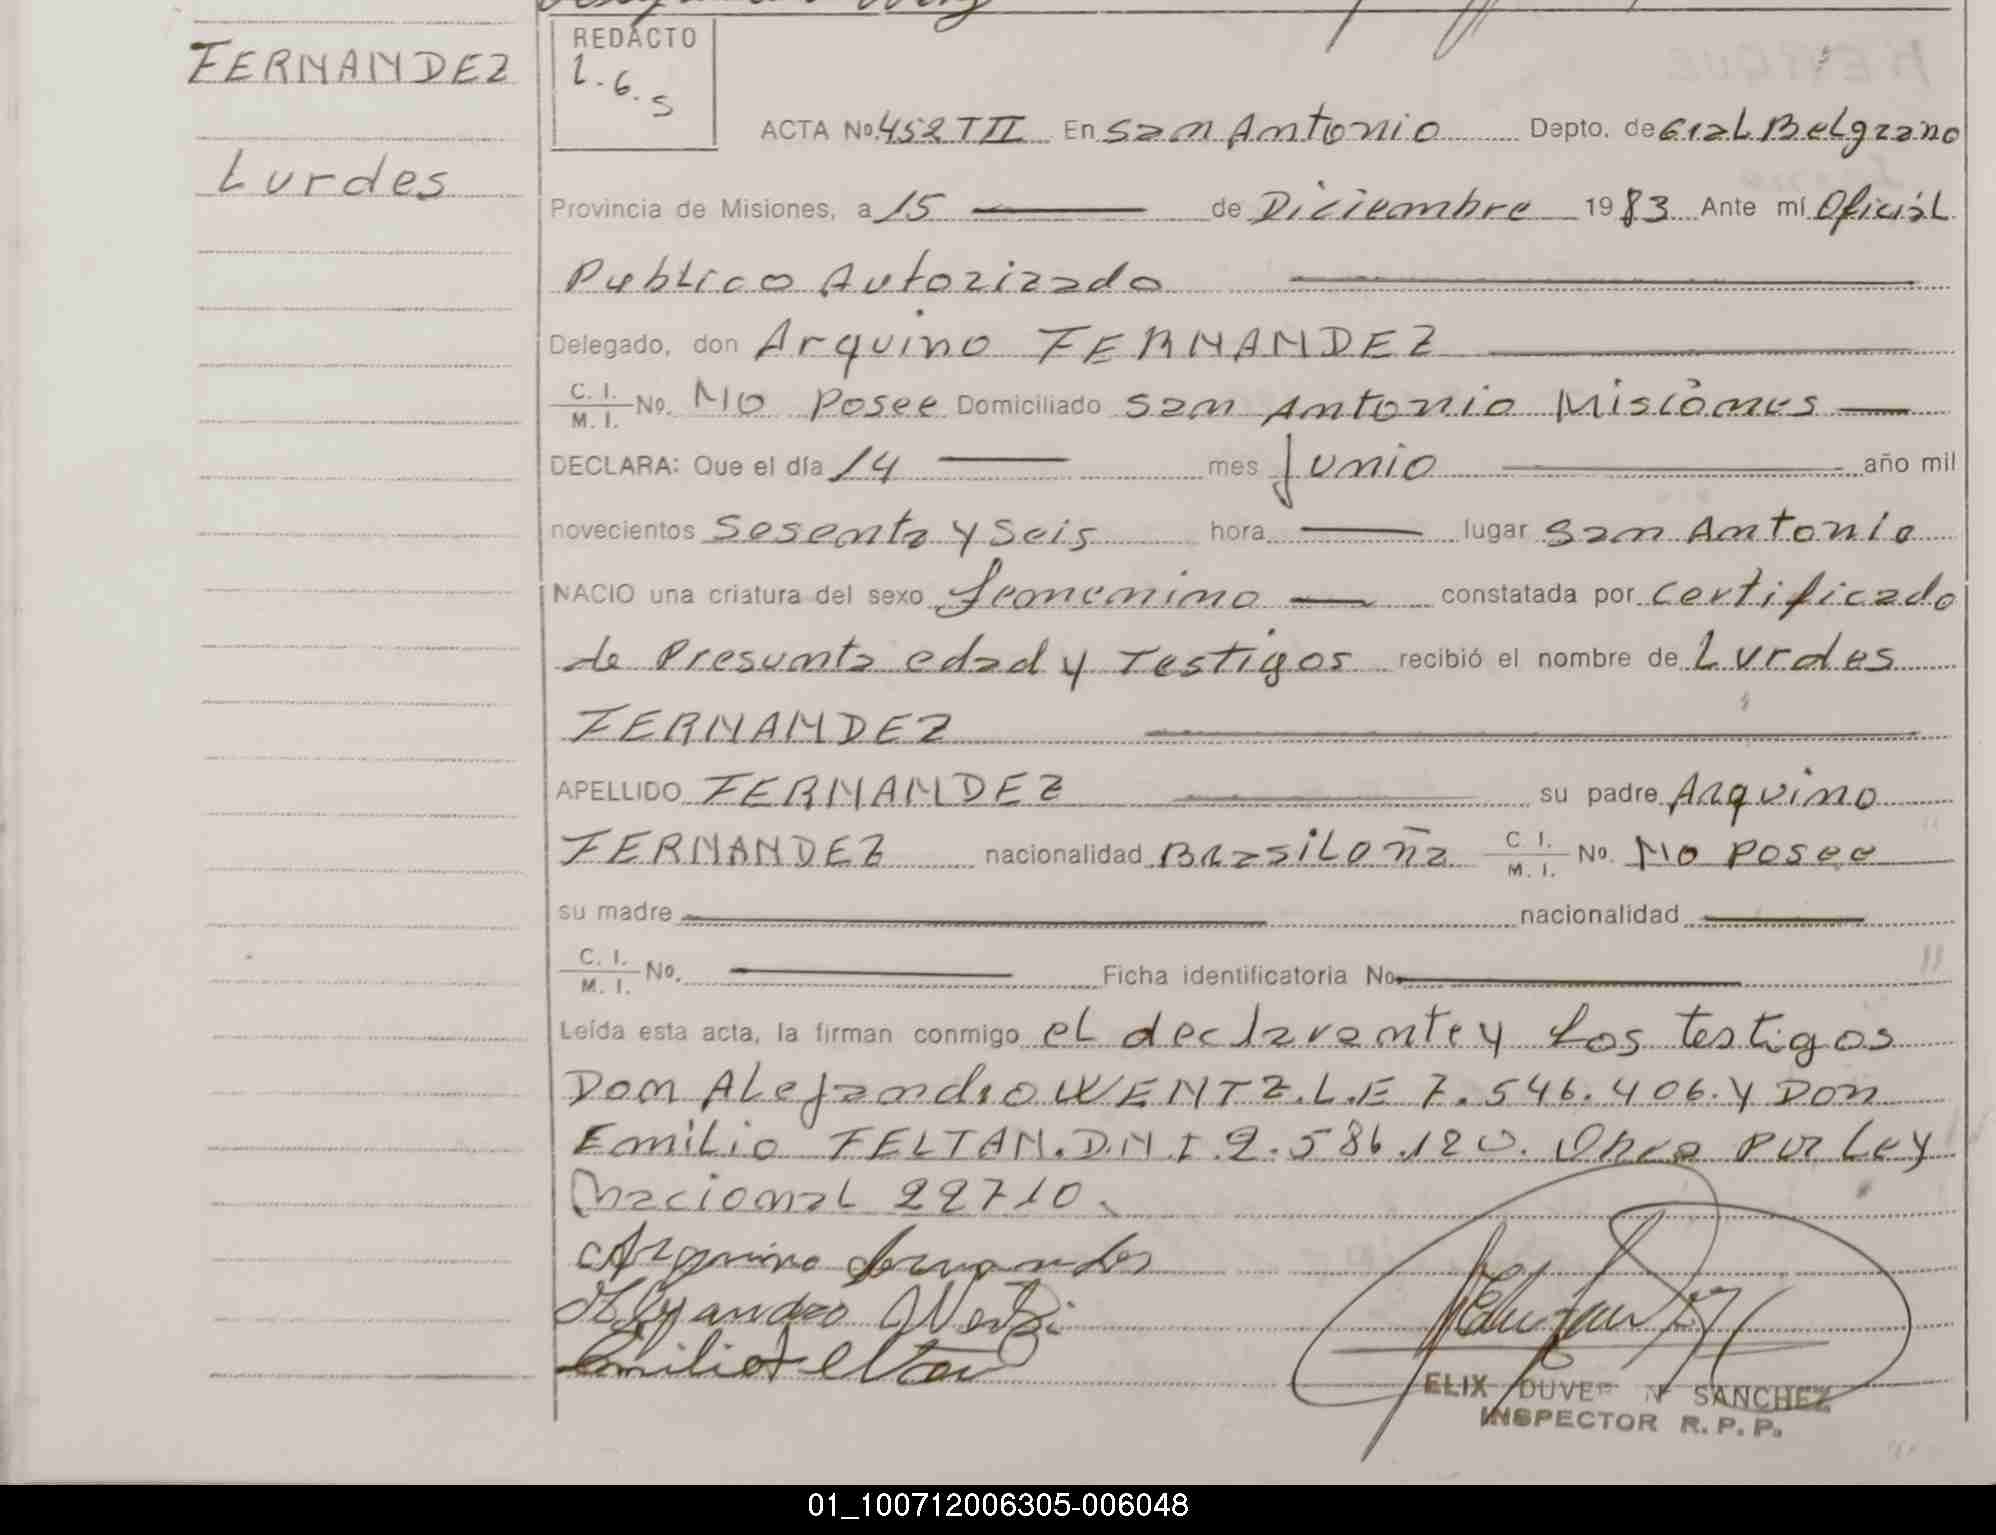 FERNANDEZ
Lurdes
REDACTO
L.6.S
ACTA No. 452 TII En San Antonio Depto. de Gral Belgrano
Provincia de Misiones, a 15 de Diciembre 1983 Ante mí Oficial
Publico Autorizado
Delegado, don Arquino FERNANDEZ
C. I. M. I. No. No Posee Domiciliado San Antonio Misiones
DECLARA: Que el día 14 mes Junio año mil
novecientos Sesenta y Seis hora lugar San Antonio
NACIO una criatura del sexo femenino constatada por certificado
de Presunta edad y Testigos recibió el nombre de Lurdes
FERNANDEZ
APELLIDO FERNANDEZ su padre Arquino
FERNANDEZ nacionalidad Brasileña C. I. M. I. No. No posee
su madre nacionalidad
C. I. M. I. No. Ficha identificatoria No.
Leída esta acta, la firman conmigo el declarante y los testigos
Don Alejandro WENTZ. L.E 7.546.406. y Don
Emilio FELTAN. D.N.I. 2.586.120. por Ley
Nacional 22710.
Arquino Fernandes
Alejandro
Emilio
ELIX DUVER N SANCHEZ
INSPECTOR R. P. P.
01_100712006305-006048